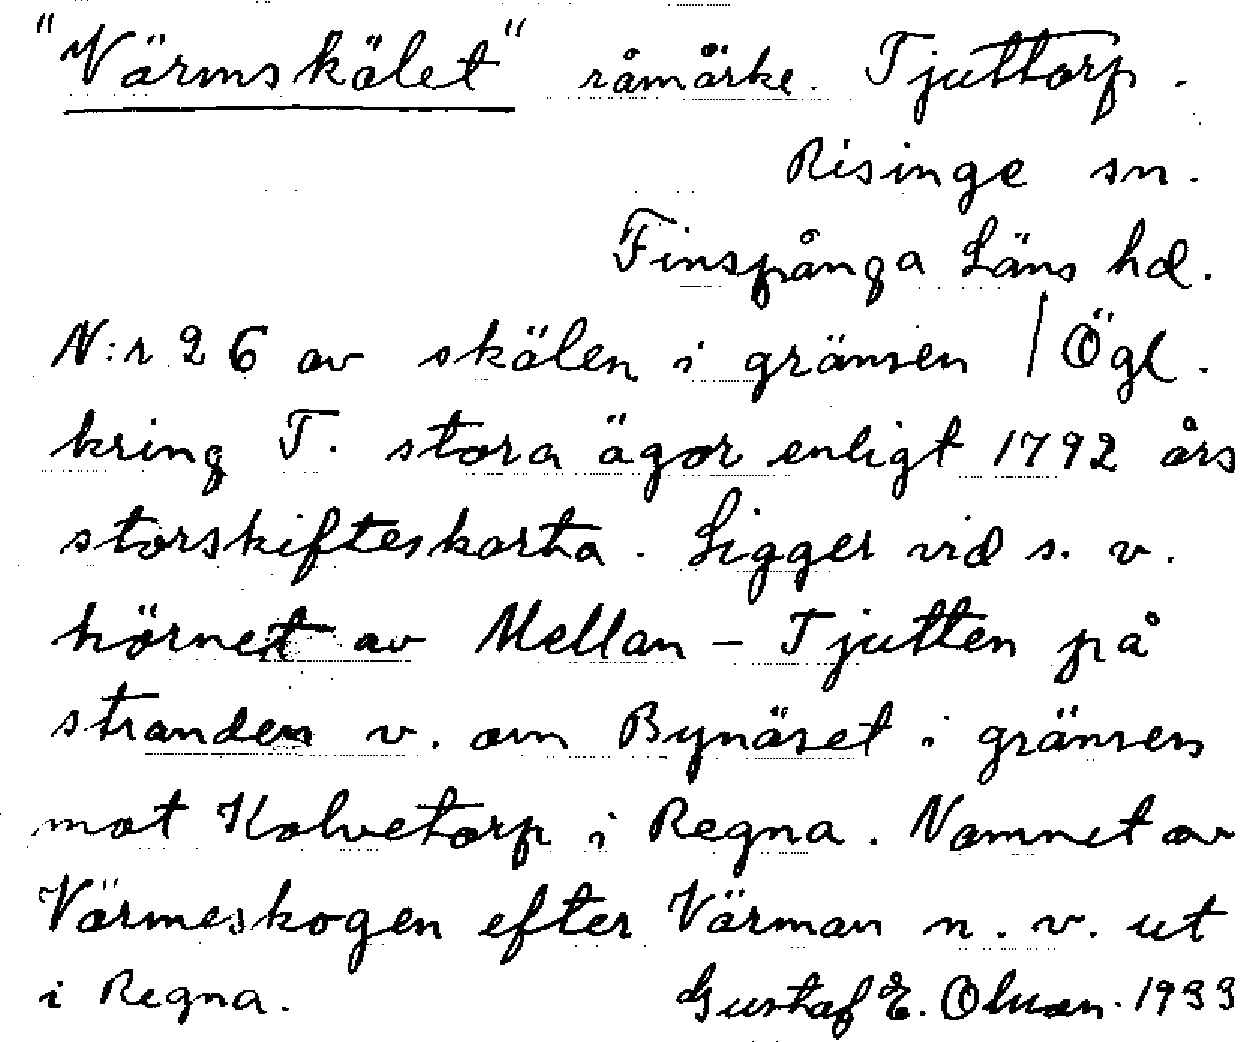 "Värmskälet" råmärke. Tjuttorp.
Risinge sn.
Finspånga Läns hd.
N:r 26 av skälen i gränsen / Ögl.
kring T. stora ägor enligt 1792 års
storskifteskarta. Ligger vid s. v.
hörnet av Mellan-Tjutten på
stranden v. om Bynäset i gränsen
mot Kalvetorp i Regna. Namnet av
Värmeskogen efter Värman n. v. ut
i Regna. Gustaf E. Olsson. 1933